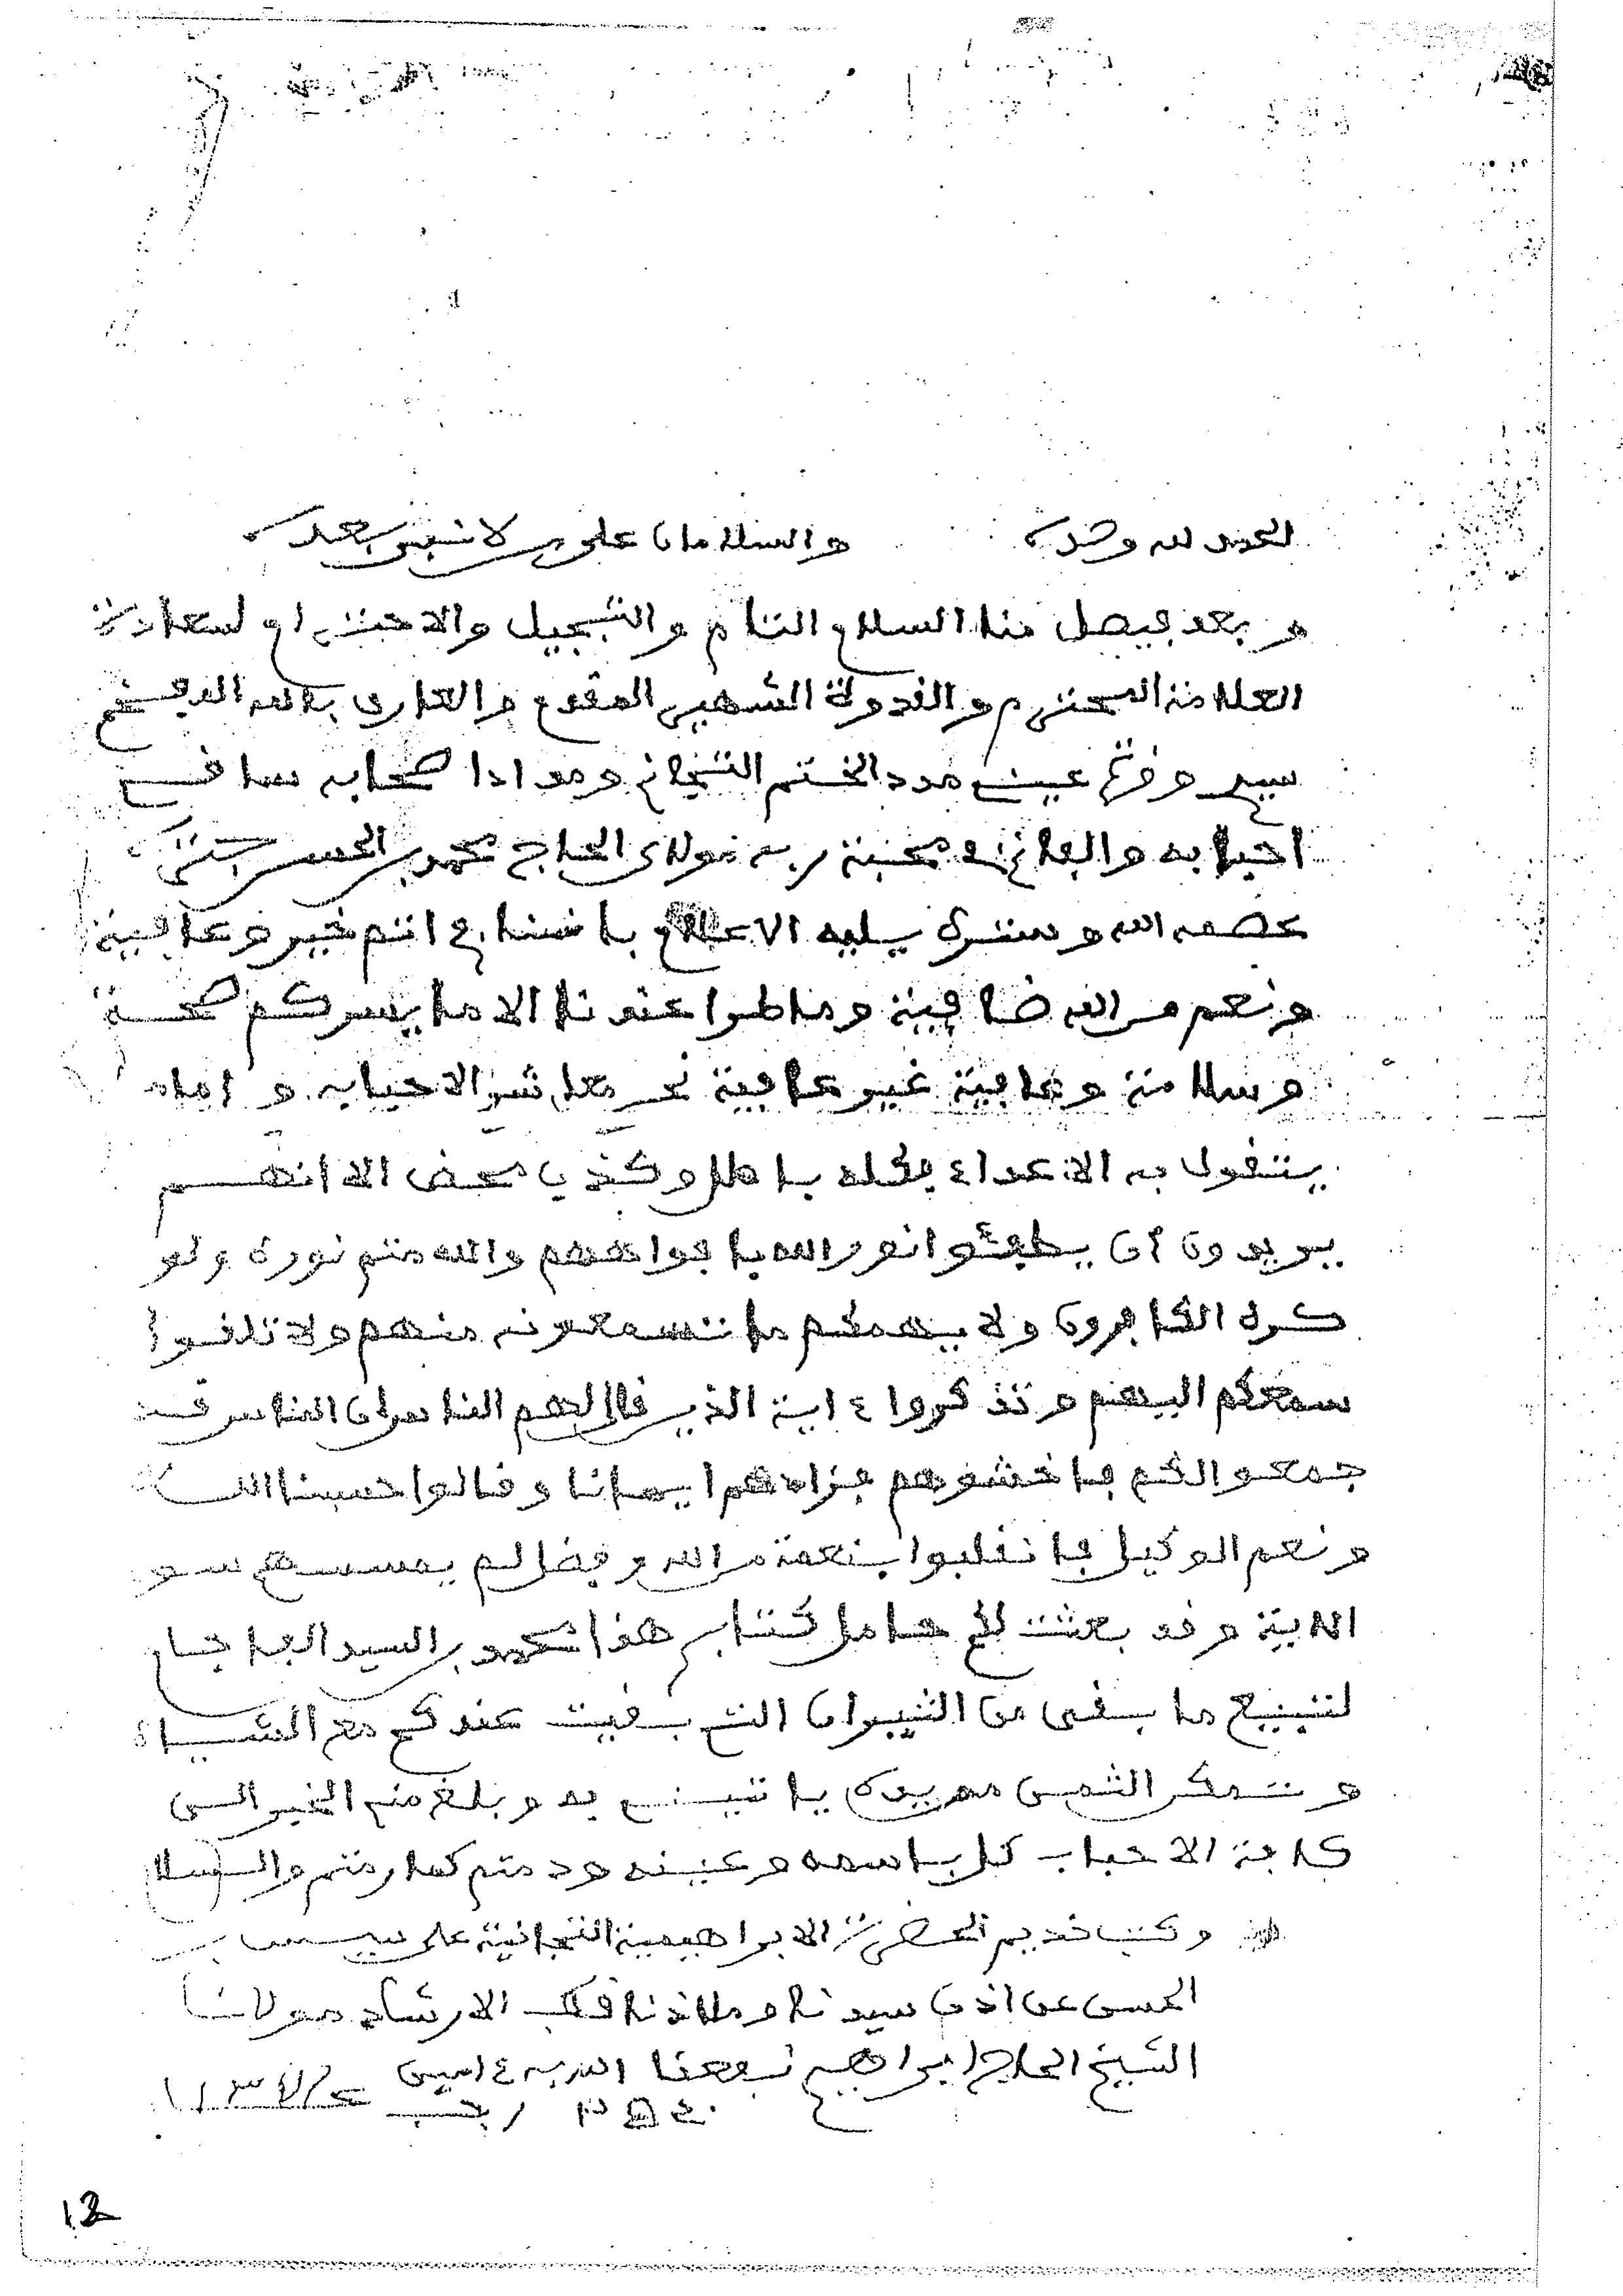 الحمد لله وحده والسلامان على من لا نبي بعده
وبعد فيصل منا السلام التام والتبجيل والاحترام لسعادة
العلامة المحترم والقدوة الشهير المقدم والعارف بالله
مدد الختم التجاني
احبابه والفاني في محبة ربه مولاي الحاج محمد بن الحسن
عصمه الله وستره يليه الاعلام باننا في اتم خير وعافية
ونعم من الله ضافية وما طرا عندنا الا ما يسركم صحة
وسلامة وعافية غير عافية نحن معاشر الاحباب و اما ما
يتقول به الاعداء فكله باطل وكذب محض الا انهم
يريدون أن يطفئوا نور الله بافواههم والله متم نوره ولو
كره الكافرون ولا يهمكم ما تسمعونه منهم ولا تلقوا
سمعكم اليهم وتذكروا ءاية الذين قال لهم الناس ان الناس قد
جمعوا لكم فاخشوهم فزادهم ايمانا وقالوا حسبنا الله
ونعم الوكيل فانقلبوا بنعمة من الله وفضل لم يمسسهم سوء
الاية وقد بعثت لكم حامل كتابي هذا محمد بن السيد
ما بقى من الثيران التي بقيت عندكم مع الشياه
الثمن يده ياتيني به وبلغ مني الخير الى
كافة الاحباب كل باسمه وعينه ودمتم كما رمتم والسلام
وكتب خديم الحضرة الابراهيمية التجانية علي سيس بن
الحسن عن اذن سيدنا وملاذنا قطب الارشاد مولانا
الشيخ الحاج ابراهيم نفعنا الله به ءامين
رجب
12